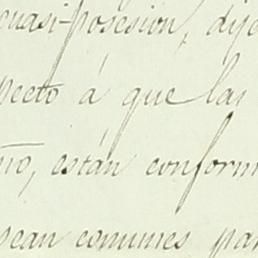 cuasi-posesion, dije
pecto á que las
nio, están conform
sean comunes par